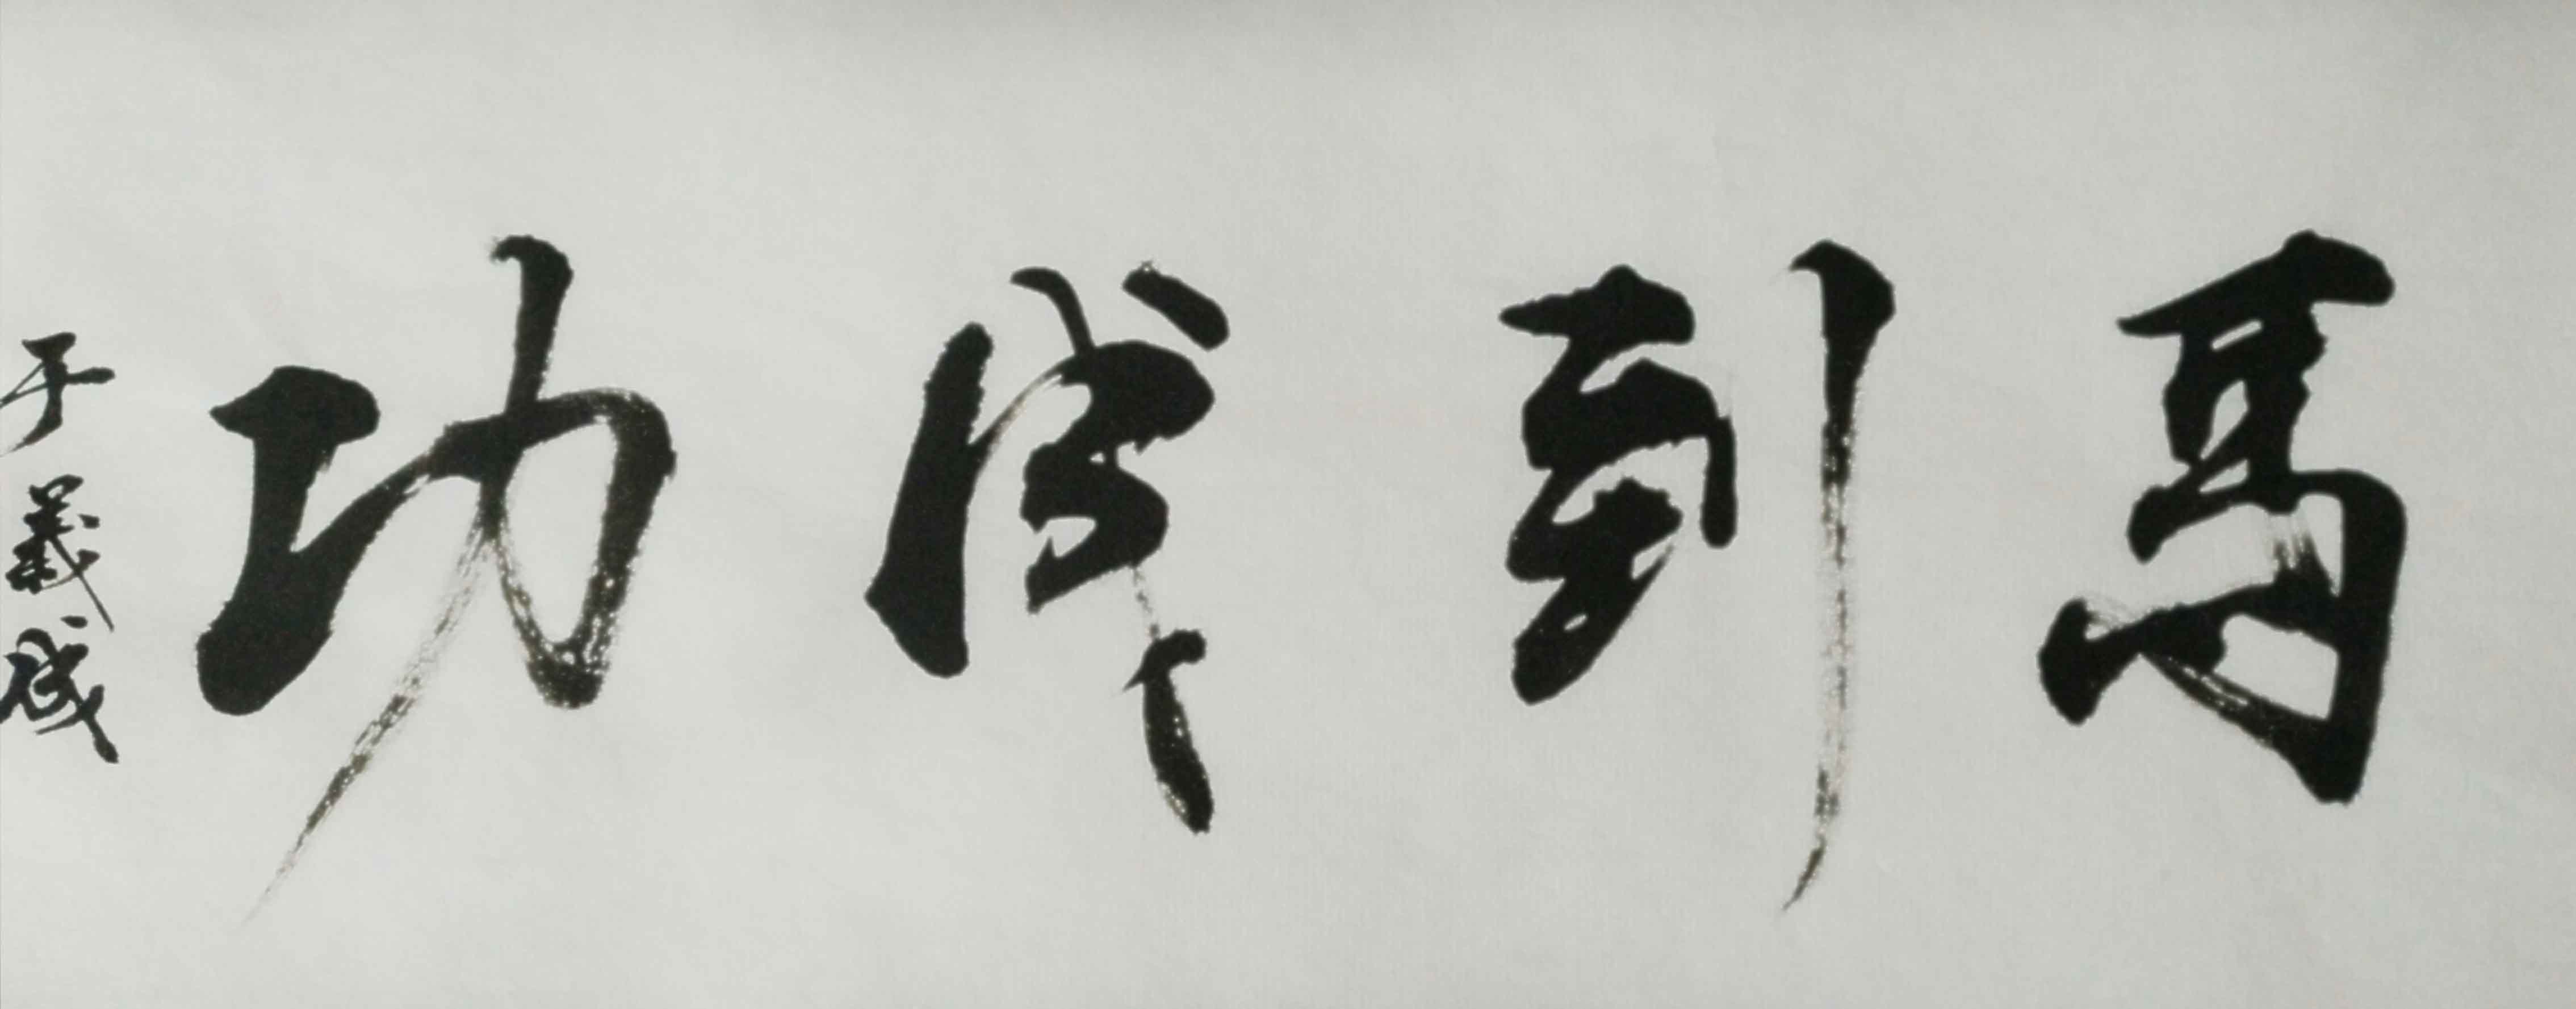 馬到成功
于義成